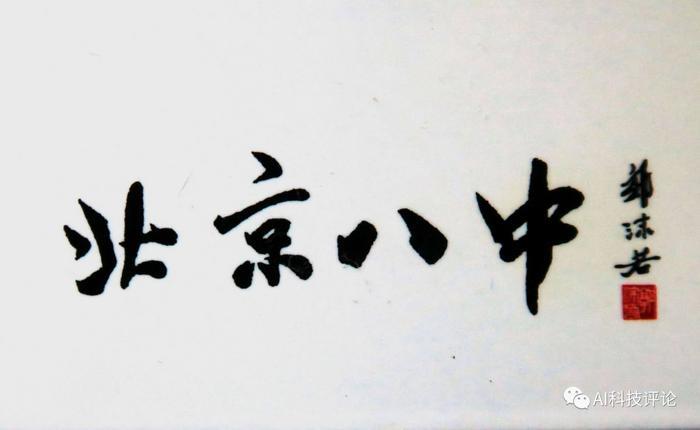 北京八中
郭沫若
AI科技评论